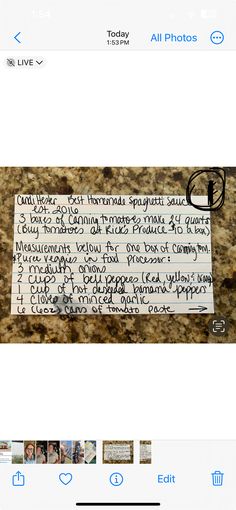 1:54
Today
1:53 PM
All Photos
LIVE
Candi Hester Best Homemade Spaghetti Sauce
est. 2016
1
3 boxes of Canning tomatoes make 24 quarts
(Buy tomatoes at Ricks Produce - in a box)
Measurements below for one box of Canning tom.
*Puree veggies in food processor:
3 medium onions
2 cups of bell peppers (Red, yellow, & orange
1 cup of hot deseeded banana peppers
4 cloves of minced garlic
6 (6oz) cans of tomato paste →
Edit